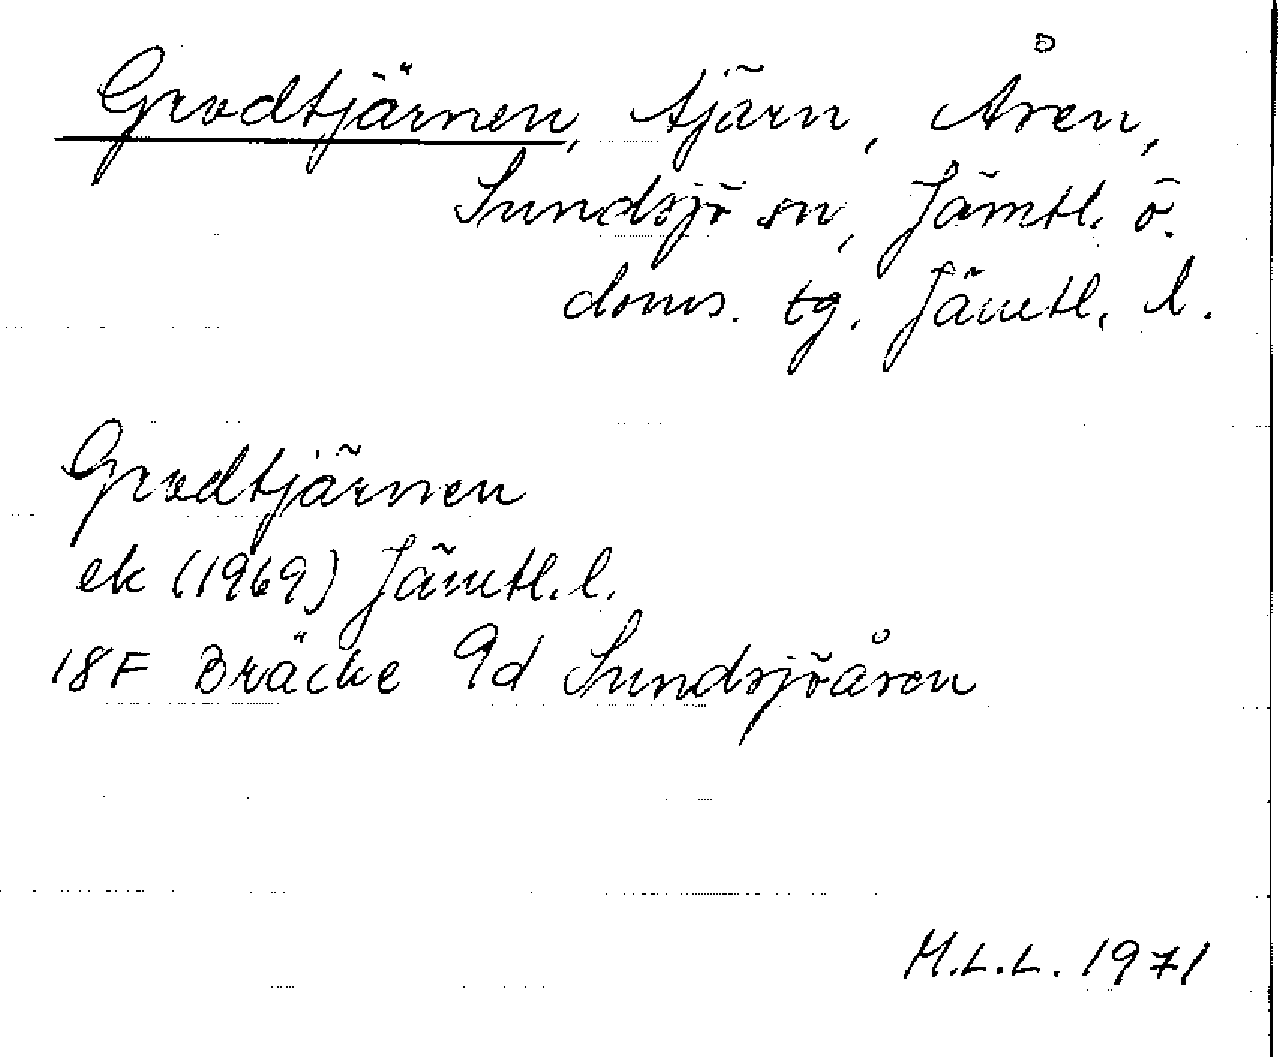 Grodtjärnen, tjärn, Åsen,
Sundsjö sn, Jämtl. ö.
doms. tg. Jämtl. l.
Grodtjärnen
ek (1969) Jämtl. l.
18F Bräcke 9d Sundsjöåsen
M.L.L. 1971